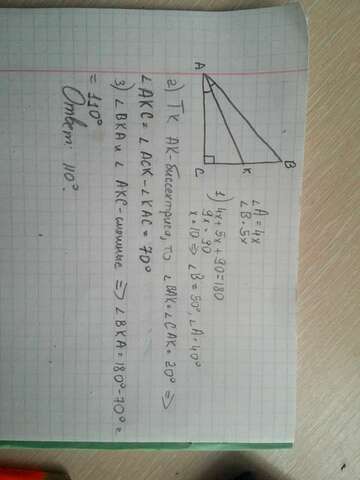 A
C
K
B
∠A = 4x
∠B = 5x
1) 4x + 5x + 90 = 180
9x = 90
x = 10 ⇒ ∠B = 50°, ∠A = 40°
2) Тк АК-биссектриса, то ∠BAK = ∠CAK = 20° ⇒
∠AKC = ∠ACK - ∠KAC = 70°
3) ∠BKA и ∠AKC - смежные ⇒ ∠BKA = 180° - 70° =
= 110°
Ответ: 110°.